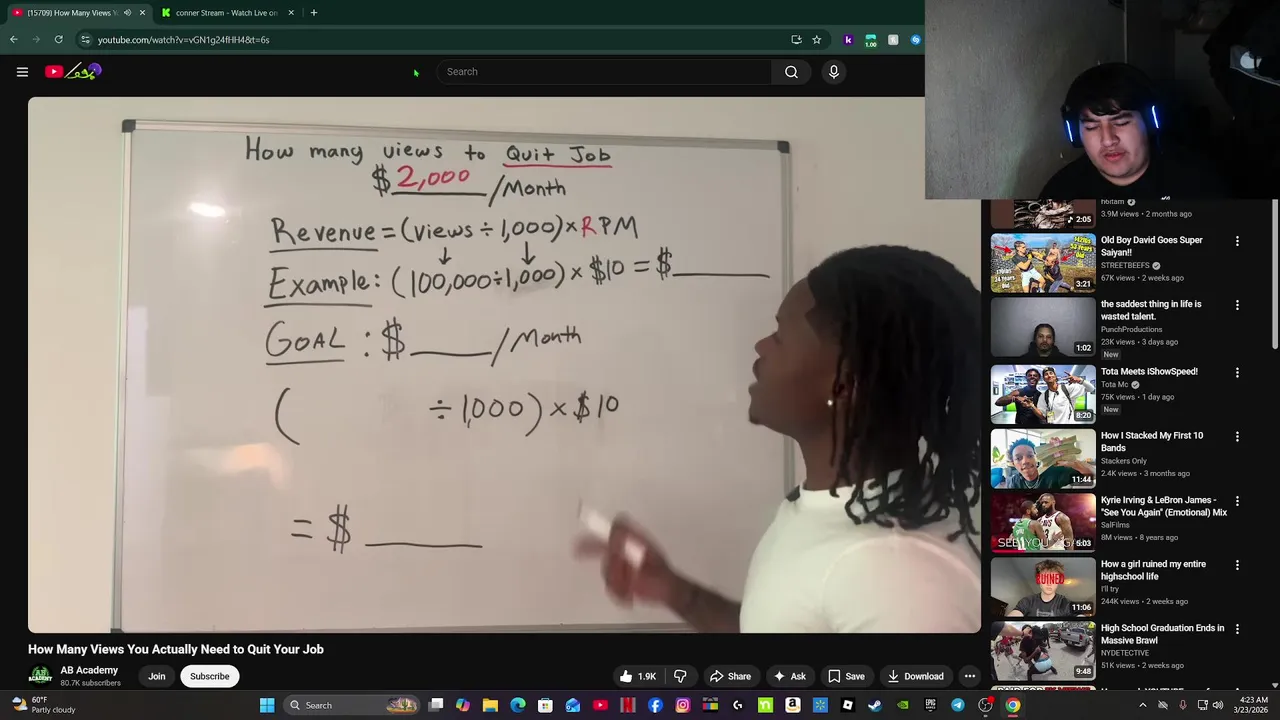 (15709) How Many Views Yo
conner Stream - Watch Live on
youtube.com/watch?v=vGN1g24fHH4&t=6s
1.00
Search
How many views to Quit Job
$ 2,000 /Month
Revenue = (views ÷ 1,000) × RPM
Example: (100,000÷1,000) × $10 = $
GOAL : $ /Month
( ÷ 1,000) × $10
= $
How Many Views You Actually Need to Quit Your Job
AB Academy
80.7K subscribers
Join
Subscribe
Share
Ask
Save
Download
3.9M views • 2 months ago
2:05
Old Boy David Goes Super Saiyan!!
STREETBEEFS
67K views • 2 weeks ago
3:21
the saddest thing in life is wasted talent.
PunchProductions
23K views • 3 days ago
New
1:02
Tota Meets IShowSpeed!
Tota Mc
75K views • 1 day ago
New
8:20
How I Stacked My First 10 Bands
Stackers Only
2.4K views • 3 months ago
11:44
Kyrie Irving & LeBron James - "See You Again" (Emotional) Mix
SalFilms
8M views • 8 years ago
5:03
How a girl ruined my entire highschool life
I'll try
244K views • 2 weeks ago
RUINED
11:06
High School Graduation Ends in Massive Brawl
NYDETECTIVE
51K views • 2 weeks ago
9:48
60°F
Partly cloudy
Search
4:23 AM
3/23/2026